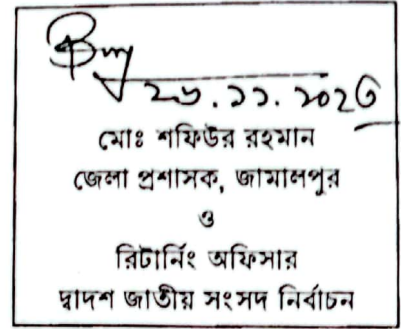 ২৬.১১.২০২৩
মোঃ শফিউর রহমান
জেলা প্রশাসক, জামালপুর
ও
রিটার্নিং অফিসার
দ্বাদশ জাতীয় সংসদ নির্বাচন